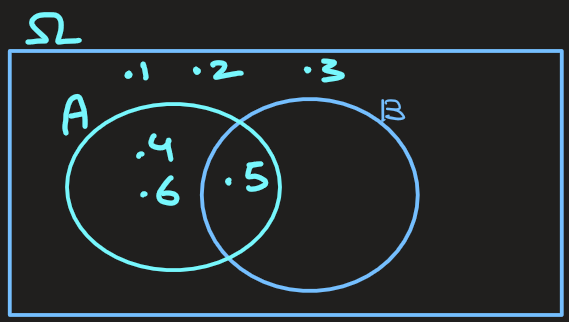 Ω
.1 .2 .3
A B
.4
.6 .5